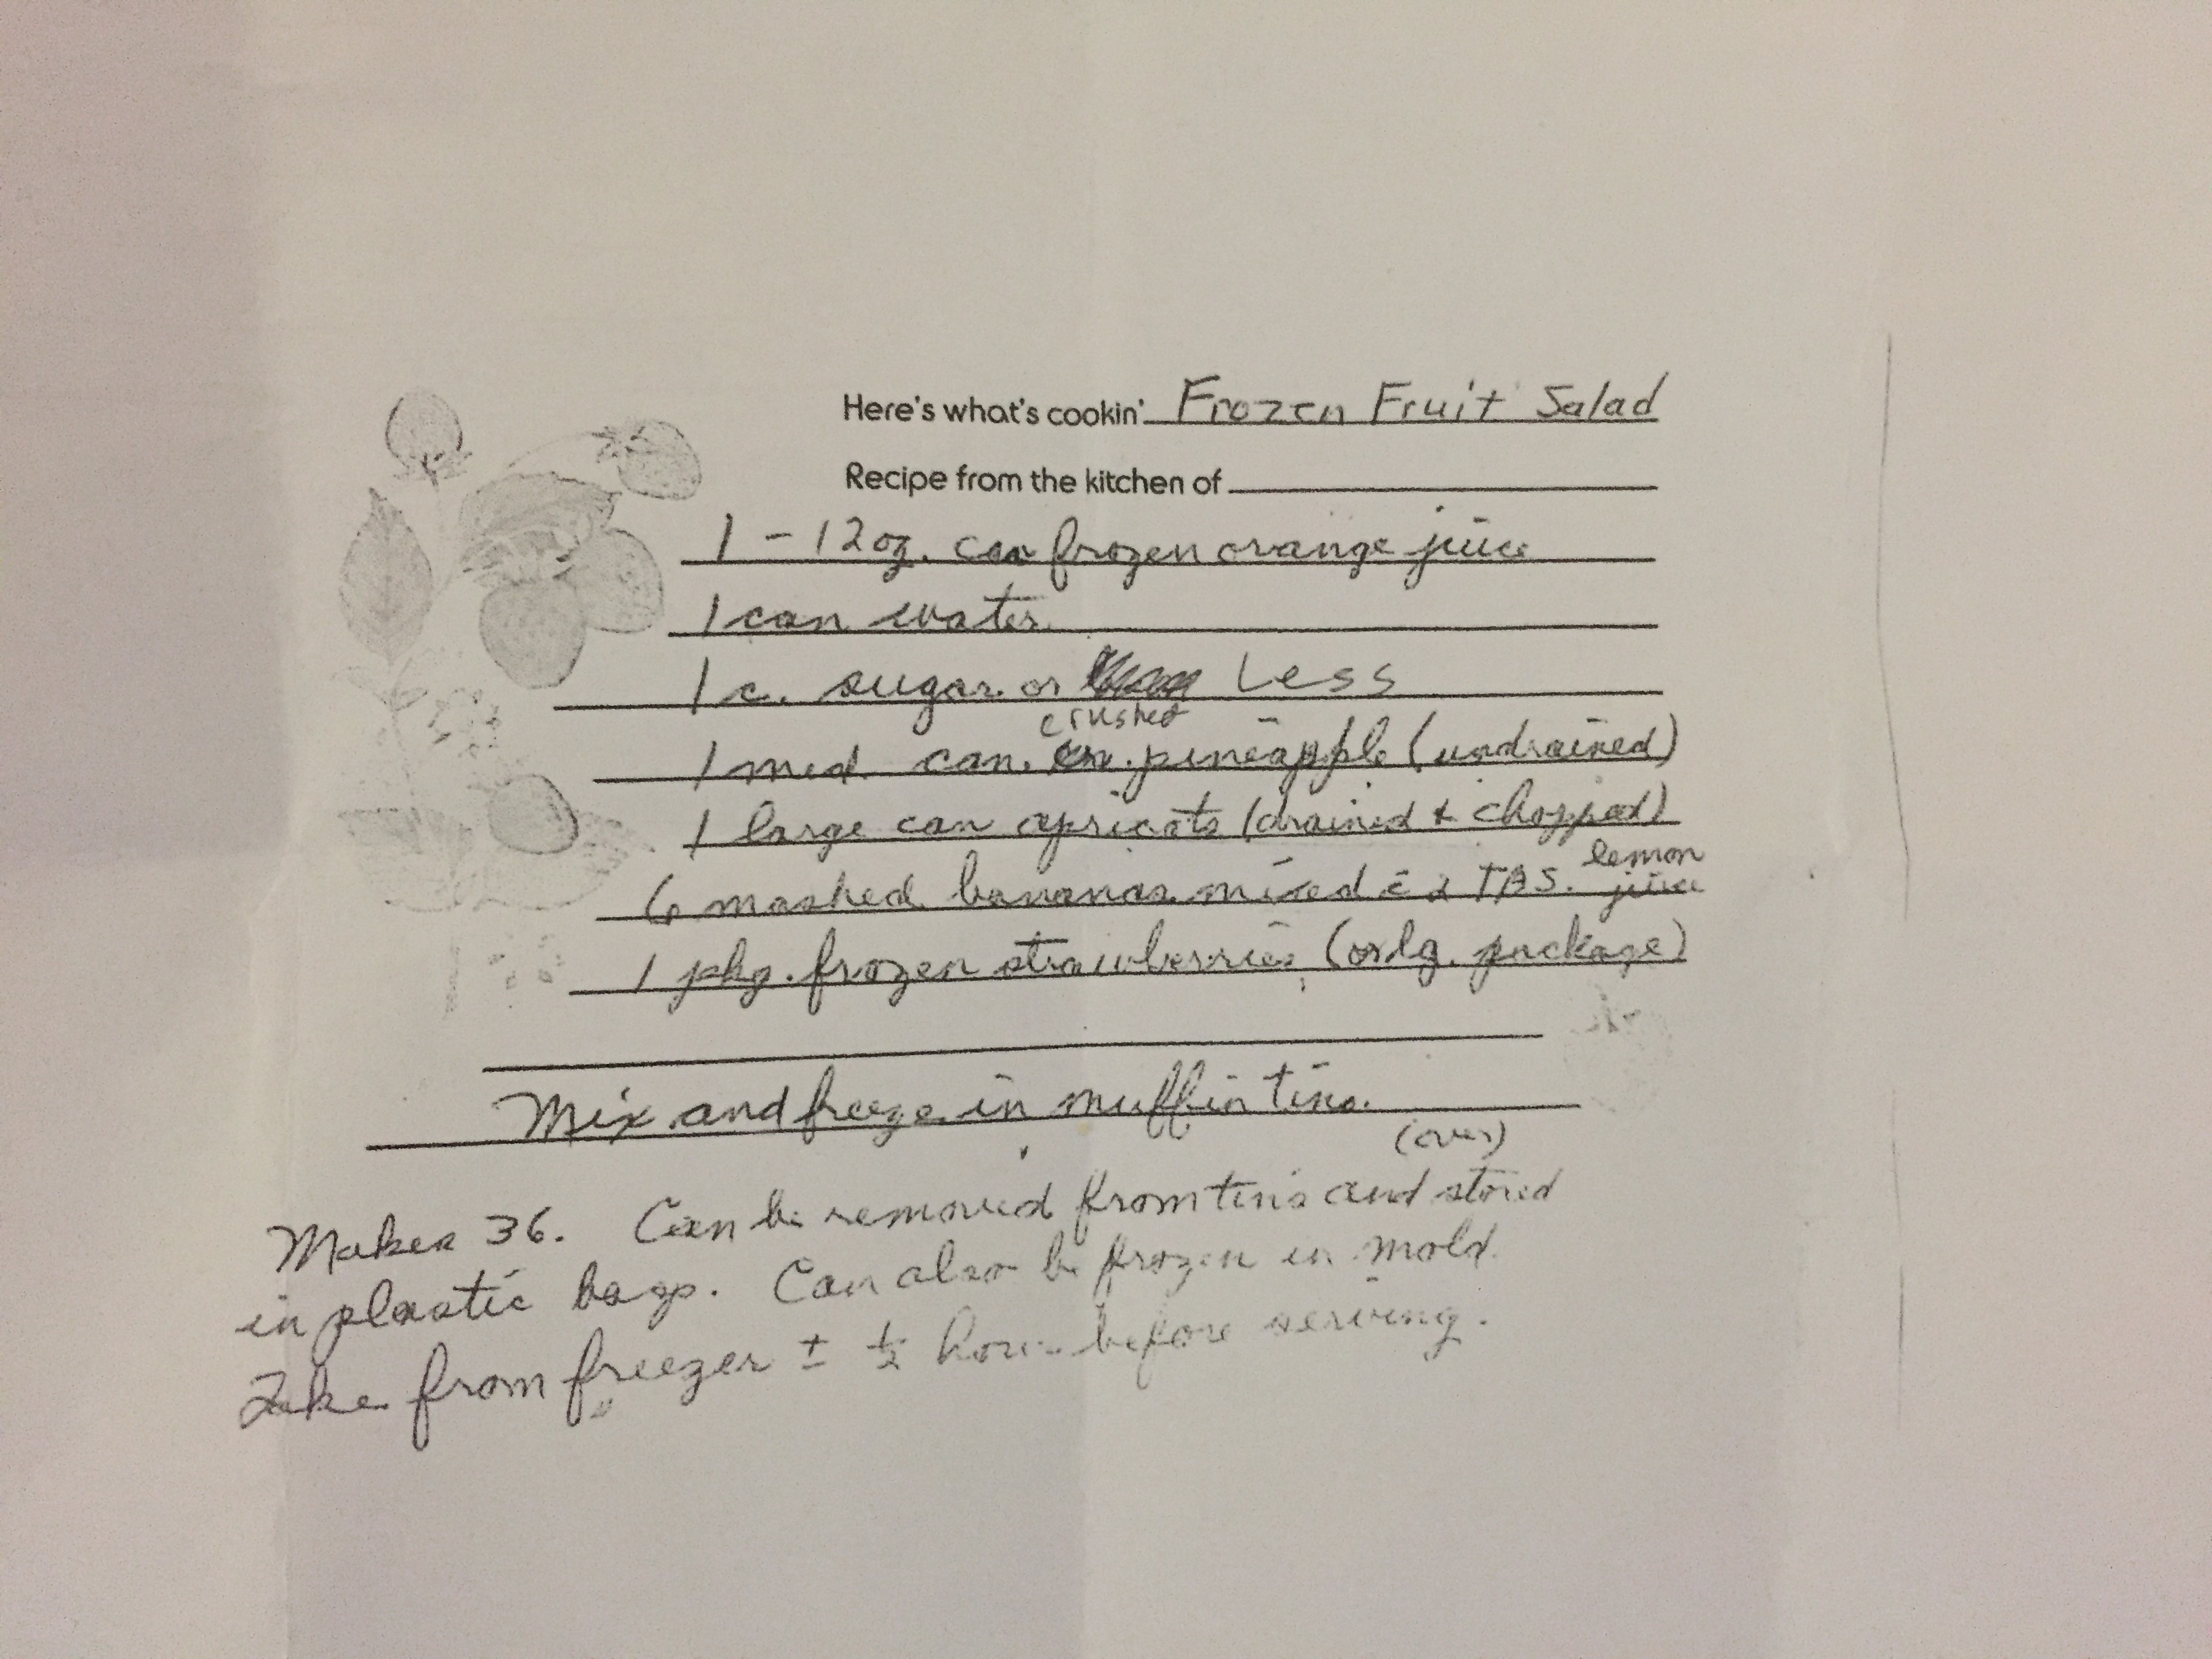 Here's what's cookin' Frozen Fruit Salad
Recipe from the kitchen of
1 - 12 oz. can frozen orange juice
1 can water
1 c. sugar or Less
crushed
1 med can pineapple (undrained)
1 large can apricots (drained & chopped)
lemon
6 mashed bananas mixed c̄ 2 TBS. juice
1 pkg. frozen strawberries (orlg. package)
Mix and freeze in muffin tins.
(over)
Makes 36. Can be removed from tins and stored
in plastic bags. Can also be frozen in mold.
Take from freezer ± ½ hour before serving.